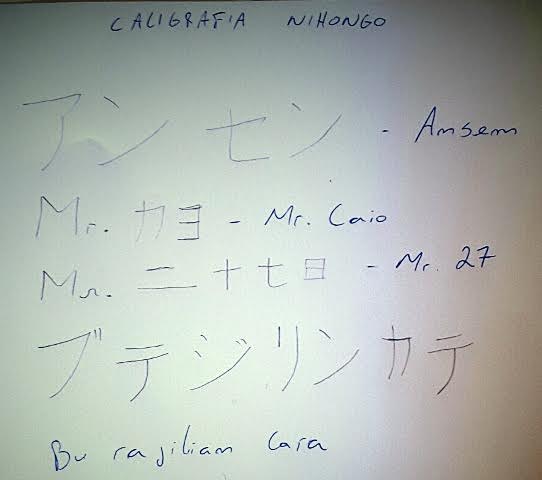 CALIGRAFIA NIHONGO
アンセン - Ansem
Mr. カヨ - Mr. Caio
Mr. 二十七日 - Mr. 27
ブテジリンカテ
Bu rajilian Cara